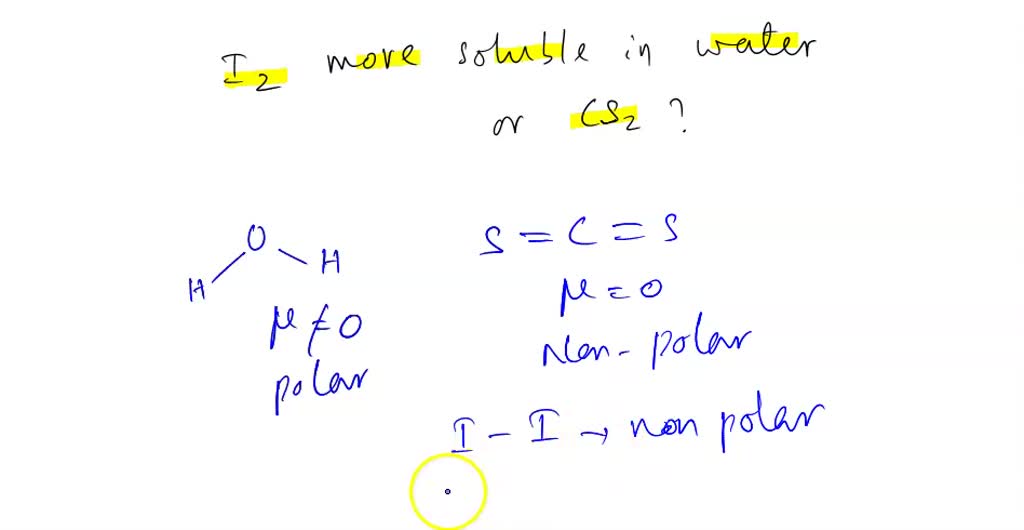 I2 more soluble in water
or CS2 ?
O
H
H
μ ≠ 0
polar
S = C = S
μ = 0
Non-polar
I - I → non polar